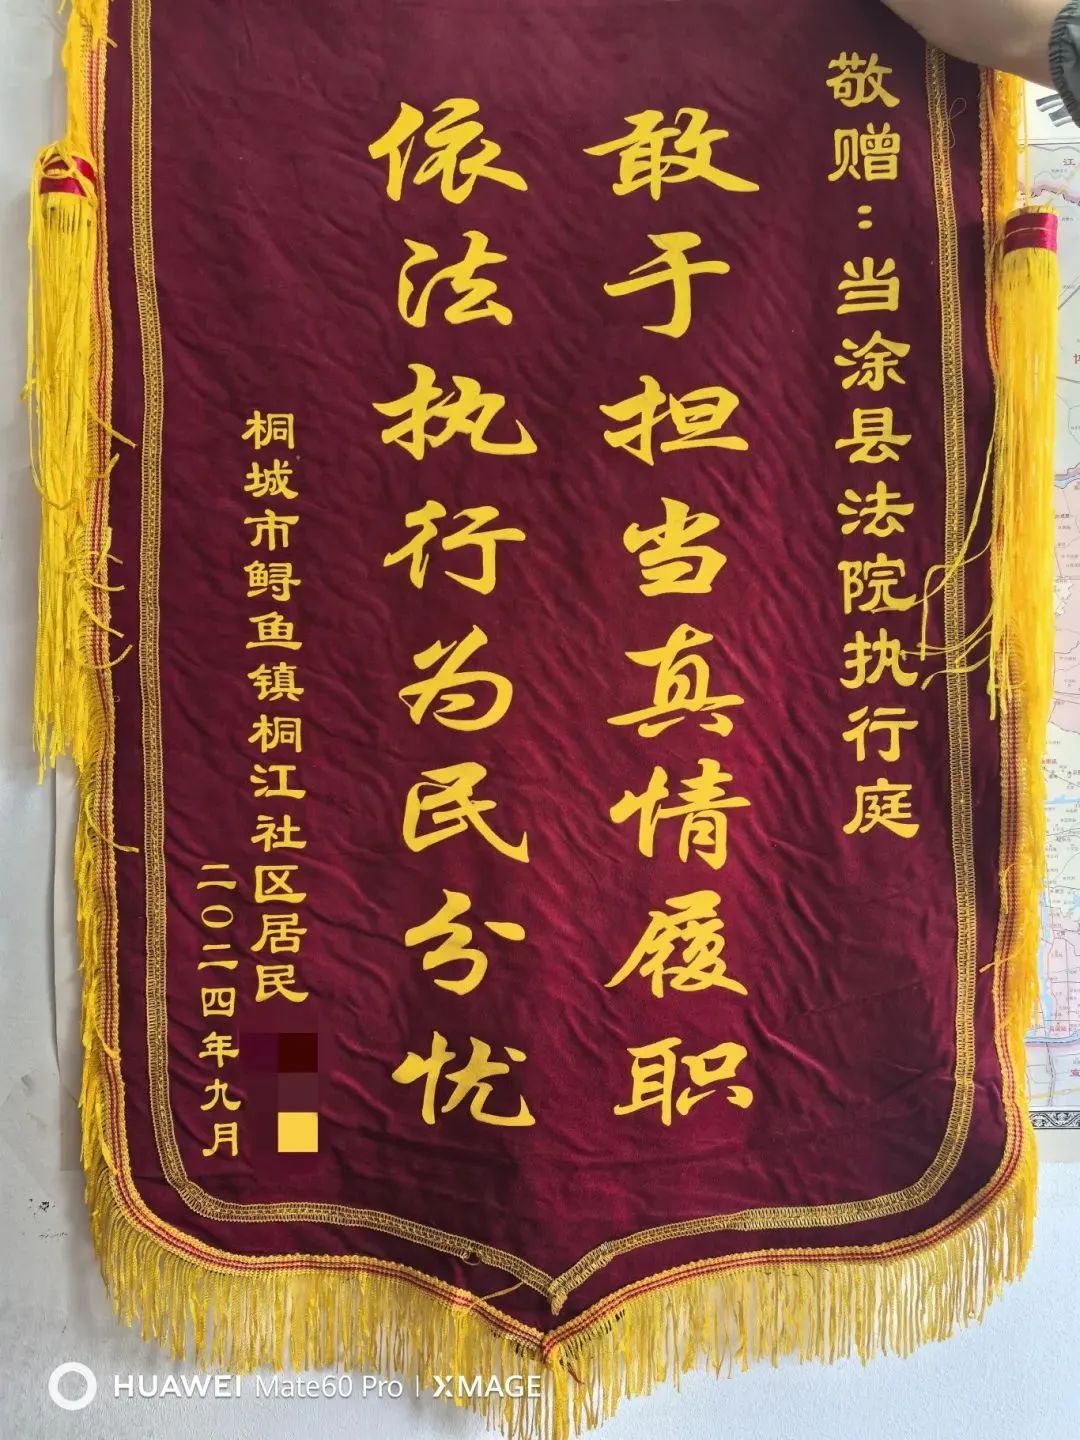 敬赠：当涂县法院执行庭
敢于担当真情履职
依法执行为民分忧
桐城市鲟鱼镇桐江社区居民
二〇二四年九月
HUAWEI Mate60 Pro | XMAGE